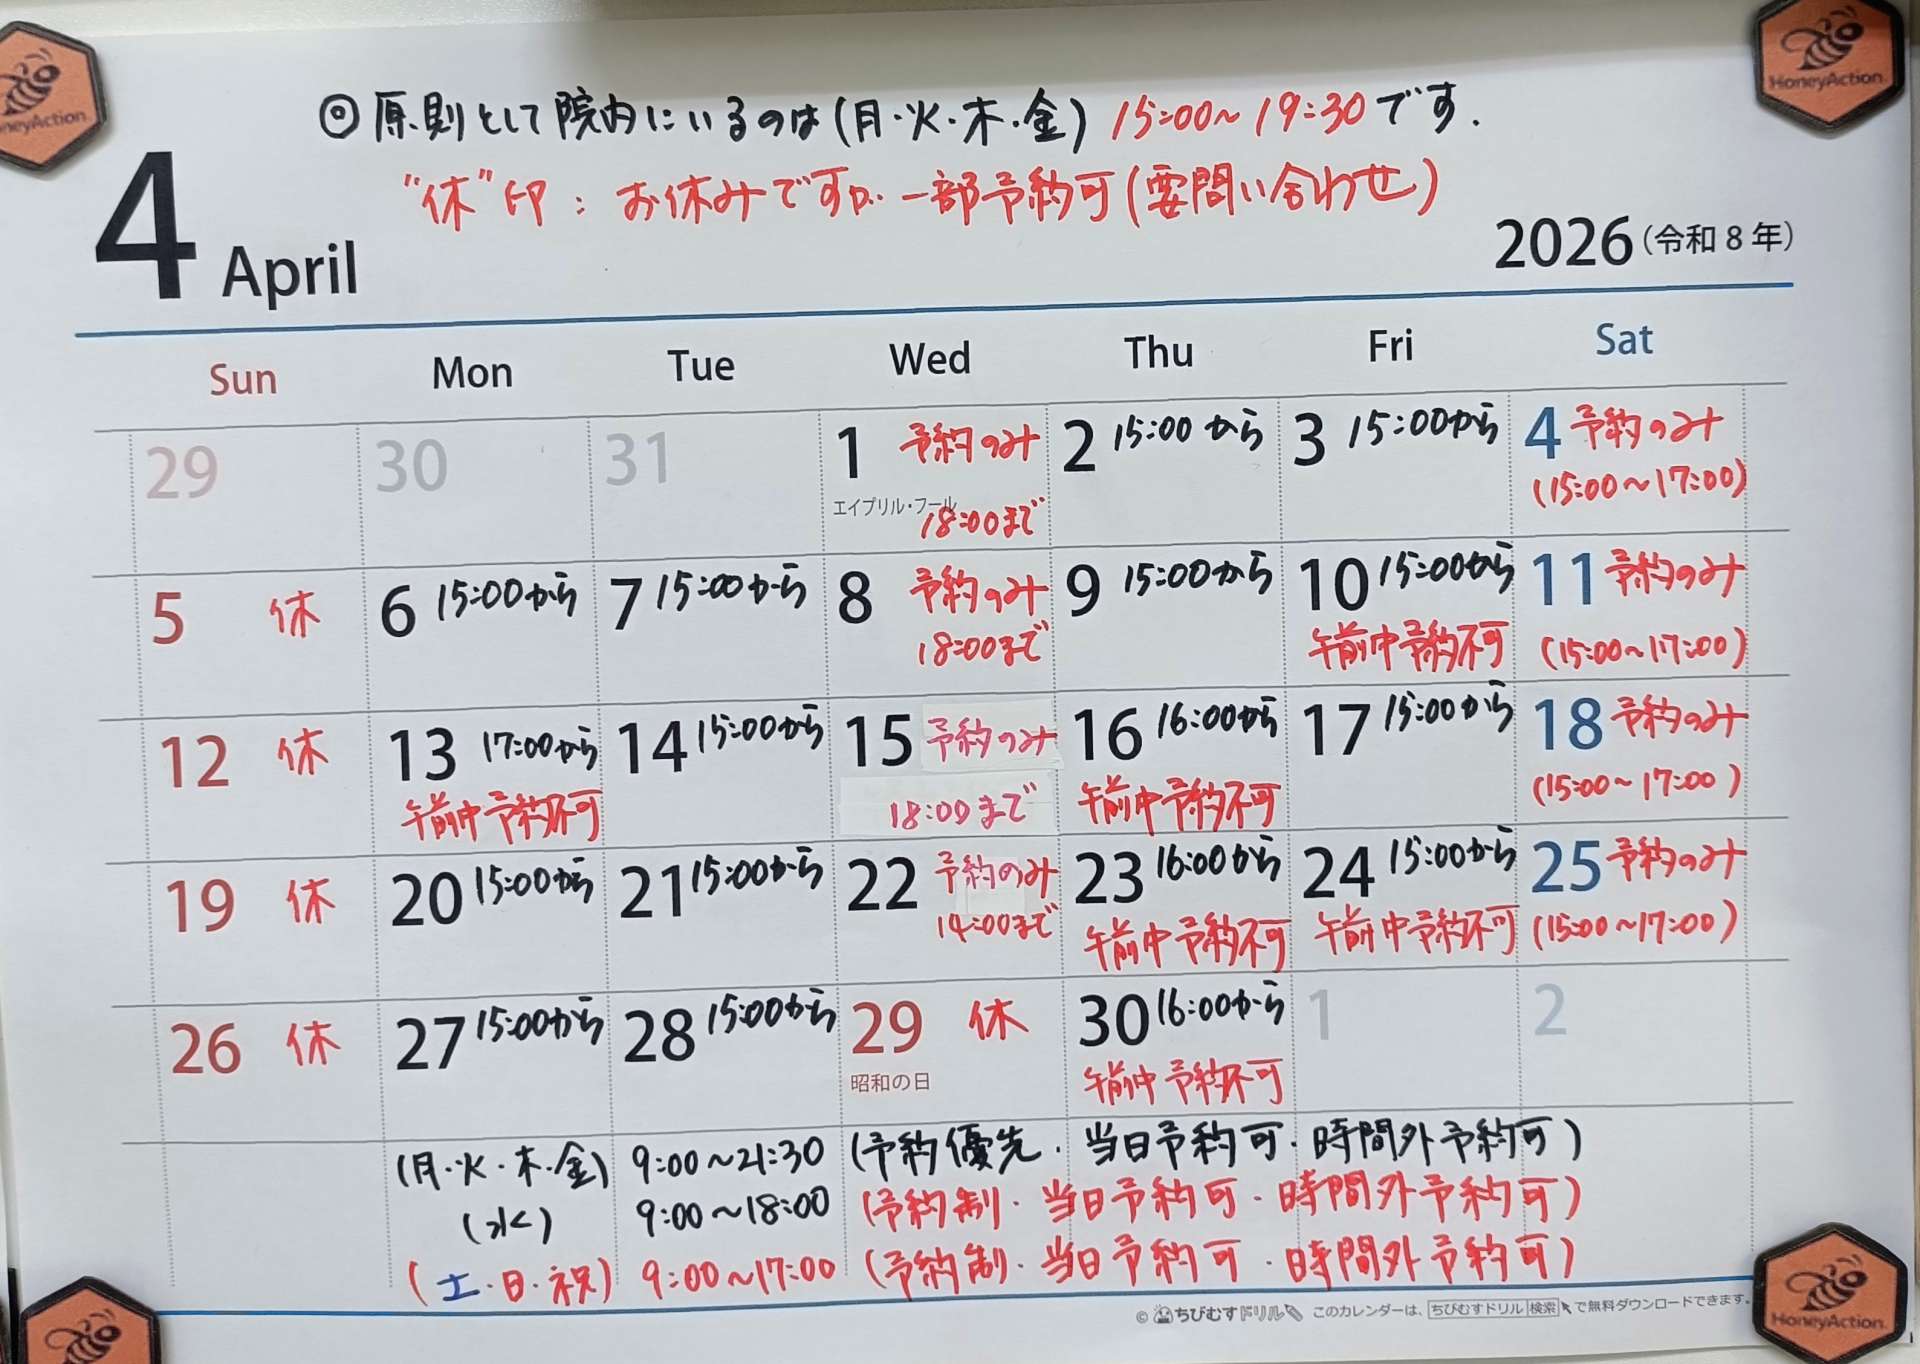 HoneyAction.
HoneyAction.
◎原則として院内にいるのは(月・火・木・金) 15:00〜19:30です.
"休"印: お休みですが.一部予約可(要問い合わせ)
4 April
2026(令和8年)
Sun Mon Tue Wed Thu Fri Sat
29 30 31 1 予約のみ 2 15:00から 3 15:00から 4 予約のみ
エイプリル・フール 18:00まで (15:00〜17:00)
5 休 6 15:00から 7 15:00から 8 予約のみ 9 15:00から 10 15:00から 11 予約のみ
18:00まで 午前中予約不可 (15:00〜17:00)
12 休 13 17:00から 14 15:00から 15 予約のみ 16 16:00から 17 15:00から 18 予約のみ
午前中予約不可 18:00まで 午前中予約不可 (15:00〜17:00)
19 休 20 15:00から 21 15:00から 22 予約のみ 23 16:00から 24 15:00から 25 予約のみ
14:00まで 午前中予約不可 午前中予約不可 (15:00〜17:00)
26 休 27 15:00から 28 15:00から 29 休 30 16:00から 1 2
昭和の日 午前中予約不可
(月・火・木・金) 9:00〜21:30 (予約優先・当日予約可・時間外予約可)
(水) 9:00〜18:00 (予約制・当日予約可・時間外予約可)
(土・日・祝) 9:00〜17:00 (予約制・当日予約可・時間外予約可)
© ちびむすドリル このカレンダーは、ちびむすドリル 検索 で無料ダウンロードできます。
HoneyAction.